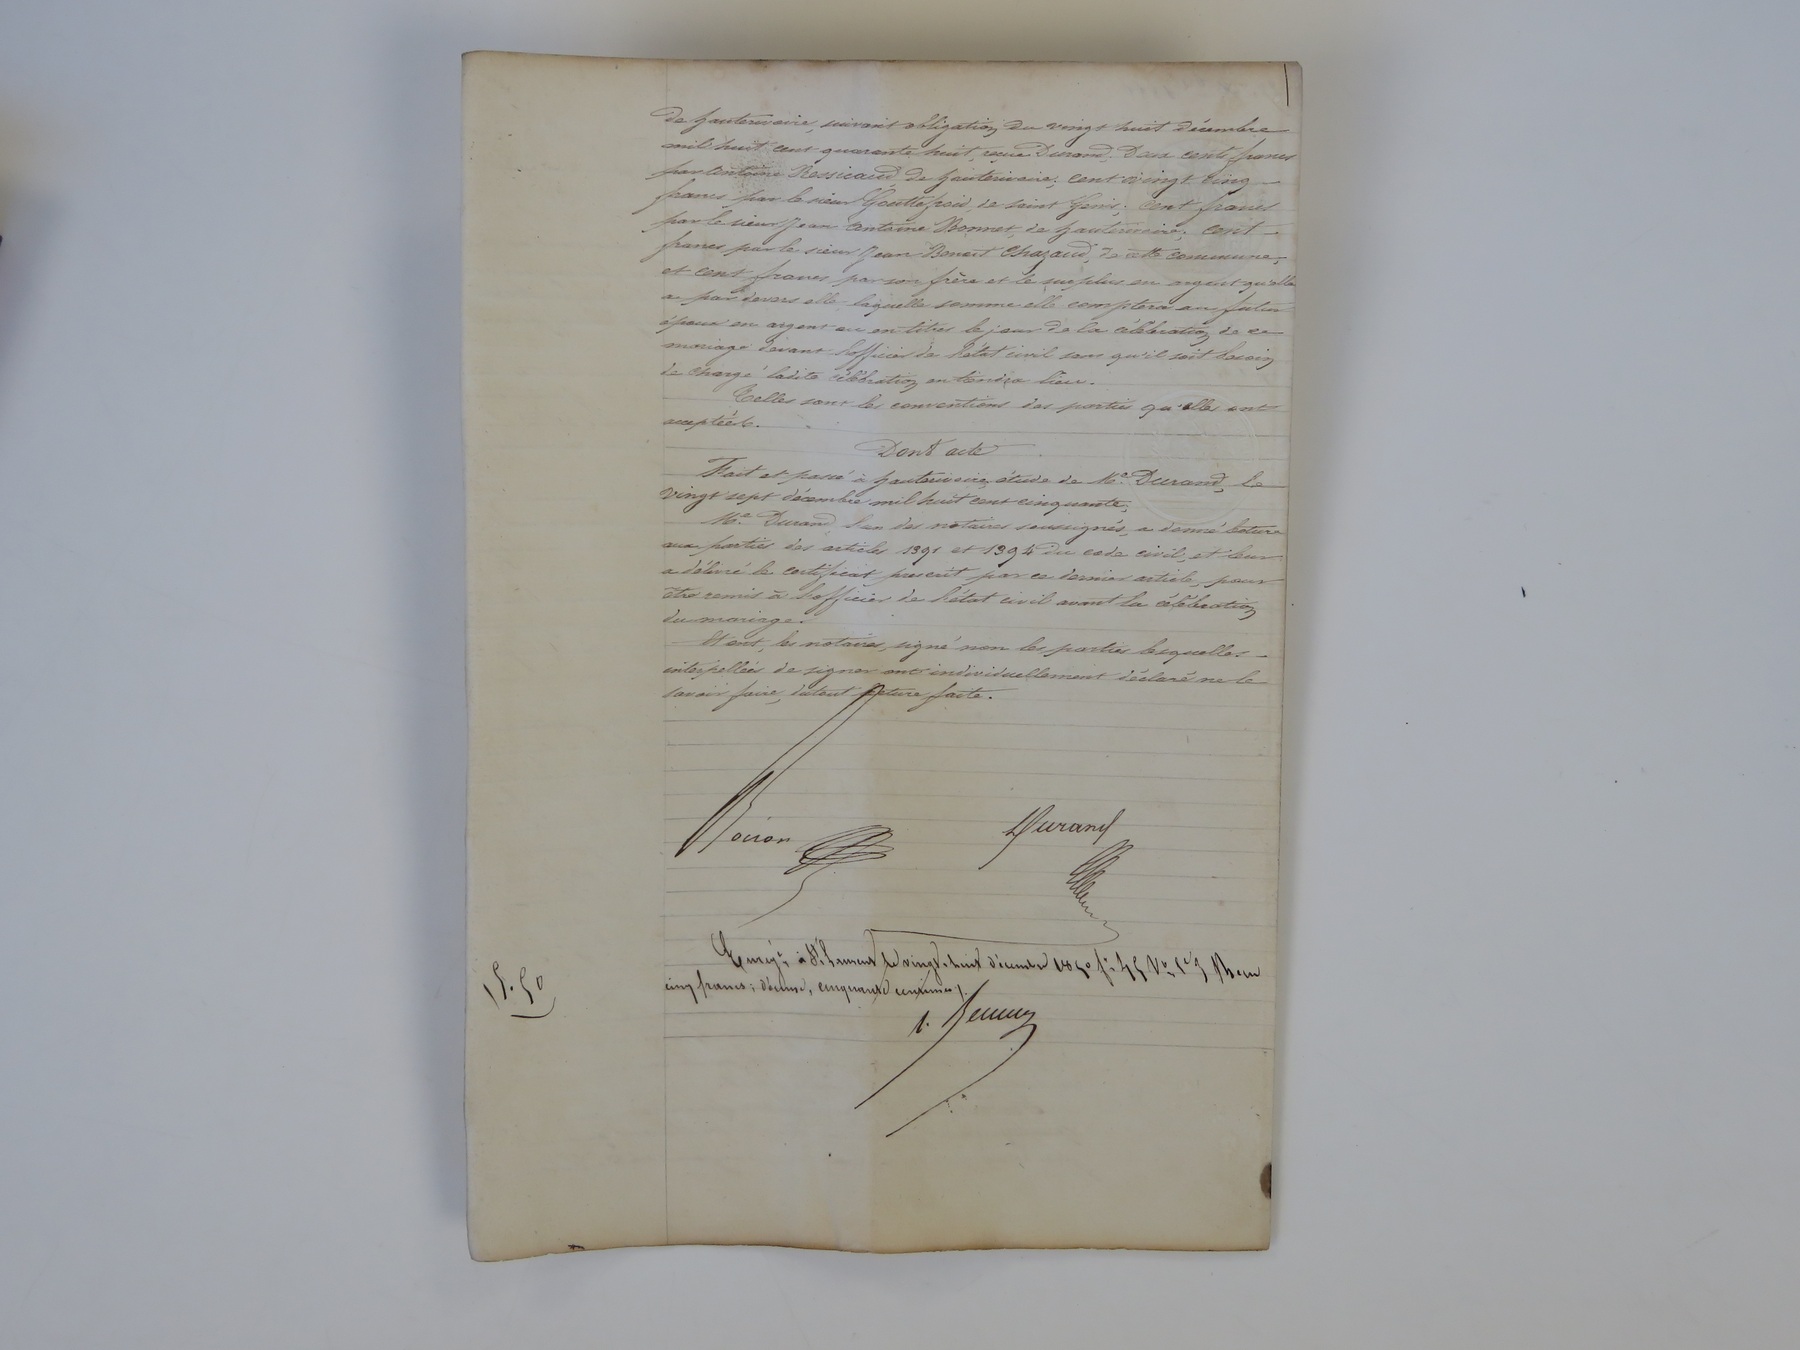 de hauterivoire, suivant obligation du vingt huit décembre
mil huit cent quarante huit, reçue Durand, Deux cents francs
par Antoine Ressicaud de hauterivoire; cent vingt cinq
francs par le sieur Gouttefroid, de saint Genis; cent francs
par le sieur Jean Antoine Bonnet, de hauterivoire; cent
francs par le sieur Jean Benoit Chazaud, de cette commune,
et cent francs par son frère et le surplus en argent qu'elle
a par devers elle, laquelle somme elle comptera au futur
époux en argent ou en titres le jour de la célébration de ce
mariage devant l'officier de l'état civil sans qu'il soit besoin
de charge ladite célébration en tiendra lieu.
Telles sont les conventions des parties qu'elles ont
acceptées.
Dont acte
Fait et passé à hauterivoire, étude de Me. Durand, le
vingt sept décembre mil huit cent cinquante,
Me. Durand, l'un des notaires soussignés, a donné lecture
aux parties des articles 1391 et 1394 du code civil, et leur
a délivré le certificat prescrit par ce dernier article, pour
être remis à l'officier de l'état civil avant la célébration
du mariage.
Et ont, les notaires, signé non les parties lesquelles
interpellées de signer ont individuellement déclaré ne le
savoir faire, du tout lecture faite.
Durand
Enregé. à St. Laurent le vingt huit décembre 1850 fo.
cinq francs; décime, cinquante centimes).
5.50